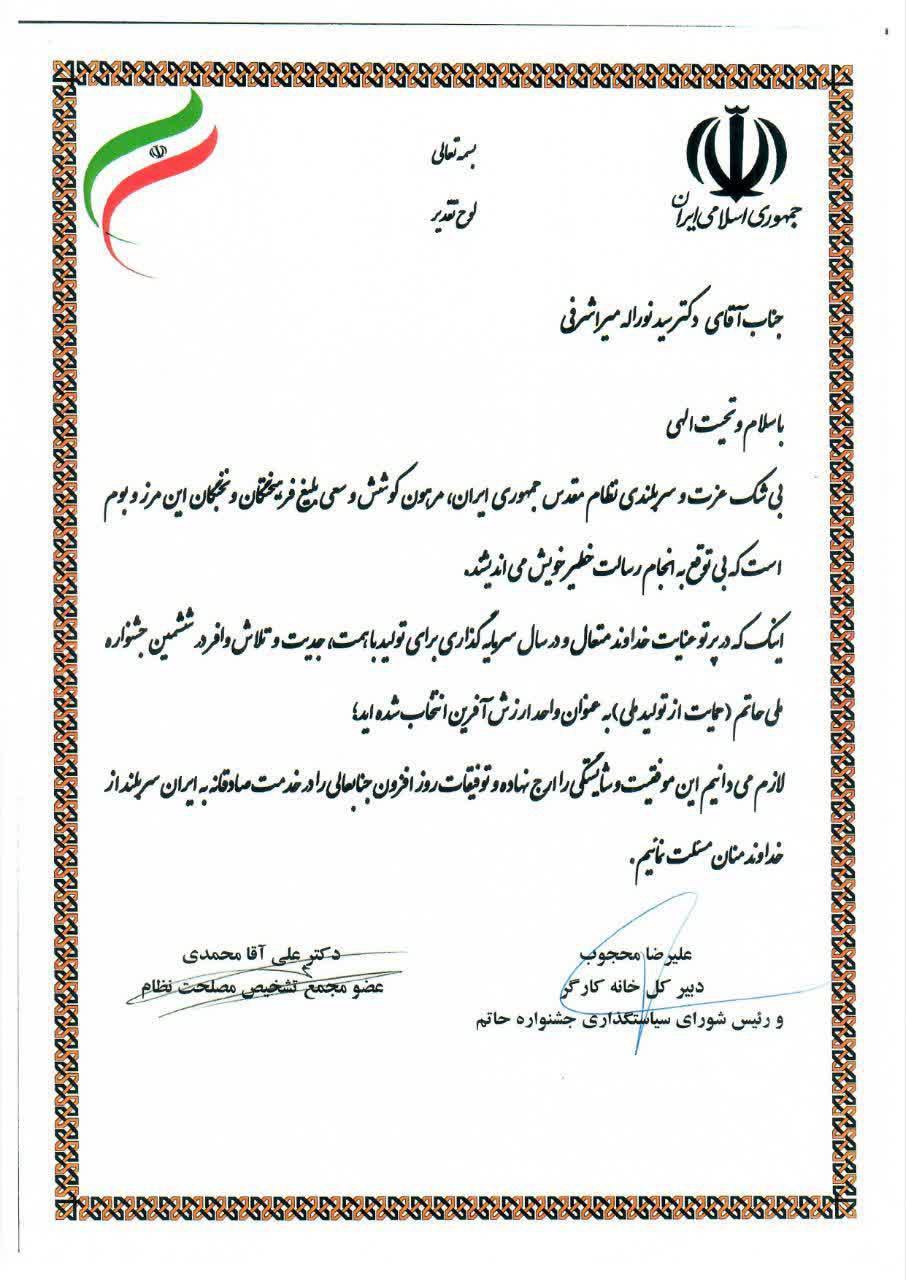 جمهوری اسلامی ایران
بسمه تعالی
لوح تقدیر
جناب آقای دکتر سید نوراله میراشرفی
با سلام و تحیت الهی
بی شک عزت و سربلندی نظام مقدس جمهوری ایران، مرهون کوشش و سعی بلیغ فرهیختگان و نخبگان این مرز و بوم
است که بی توقع به انجام رسالت خطیر خویش می اندیشند.
اینک که در پرتو عنایت خداوند متعال و در سال سرمایه گذاری برای تولید با همت، جدیت و تلاش وافر در ششمین جشنواره
ملی حاتم (حمایت از تولید ملی) به عنوان واحد ارزش آفرین انتخاب شده اید؛
لازم می دانیم این موفقیت و شایستگی را ارج نهاده و توفیقات روز افزون جنابعالی را در خدمت صادقانه به ایران سربلند از
خداوند منان مسئلت نمائیم.
علیرضا محجوب
دبیر کل خانه کارگر
و رئیس شورای سیاستگذاری جشنواره حاتم
دکتر علی آقا محمدی
عضو مجمع تشخیص مصلحت نظام